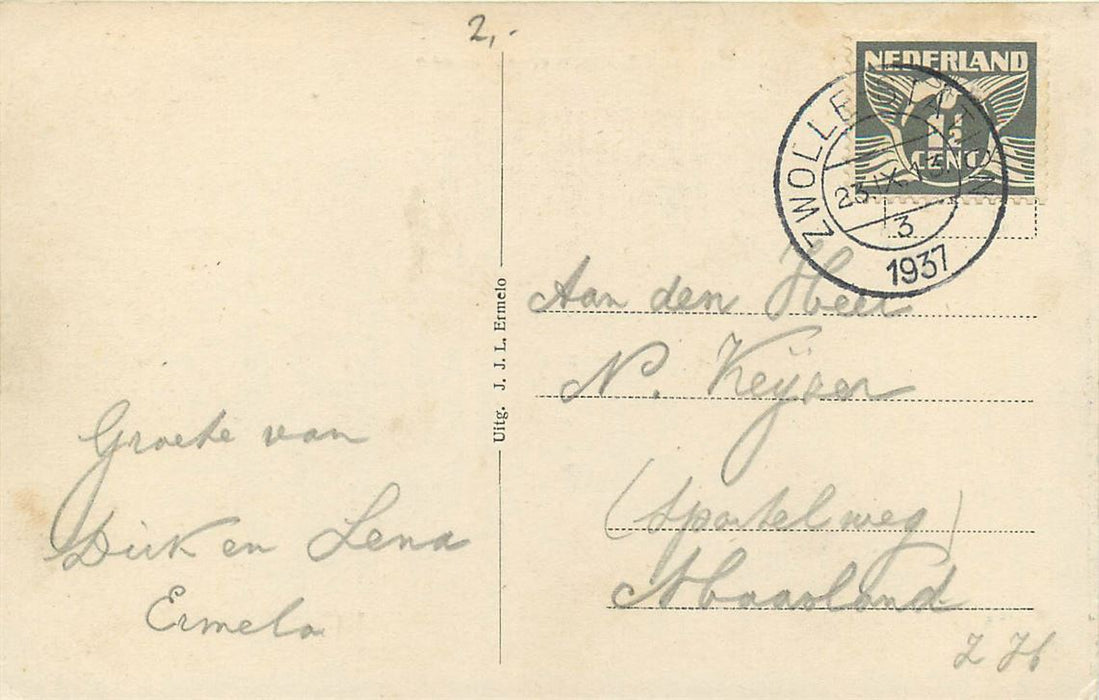 2,-
NEDERLAND
1½
CENT
ZWOLLE STATION
23.IX.13
3
1937
Uitg. J. J. L. Ermelo
Groete van
Dirk en Lena
Ermelo
Aan den Heer
N. Keijser
(Spartelweg)
Maasland
Z H